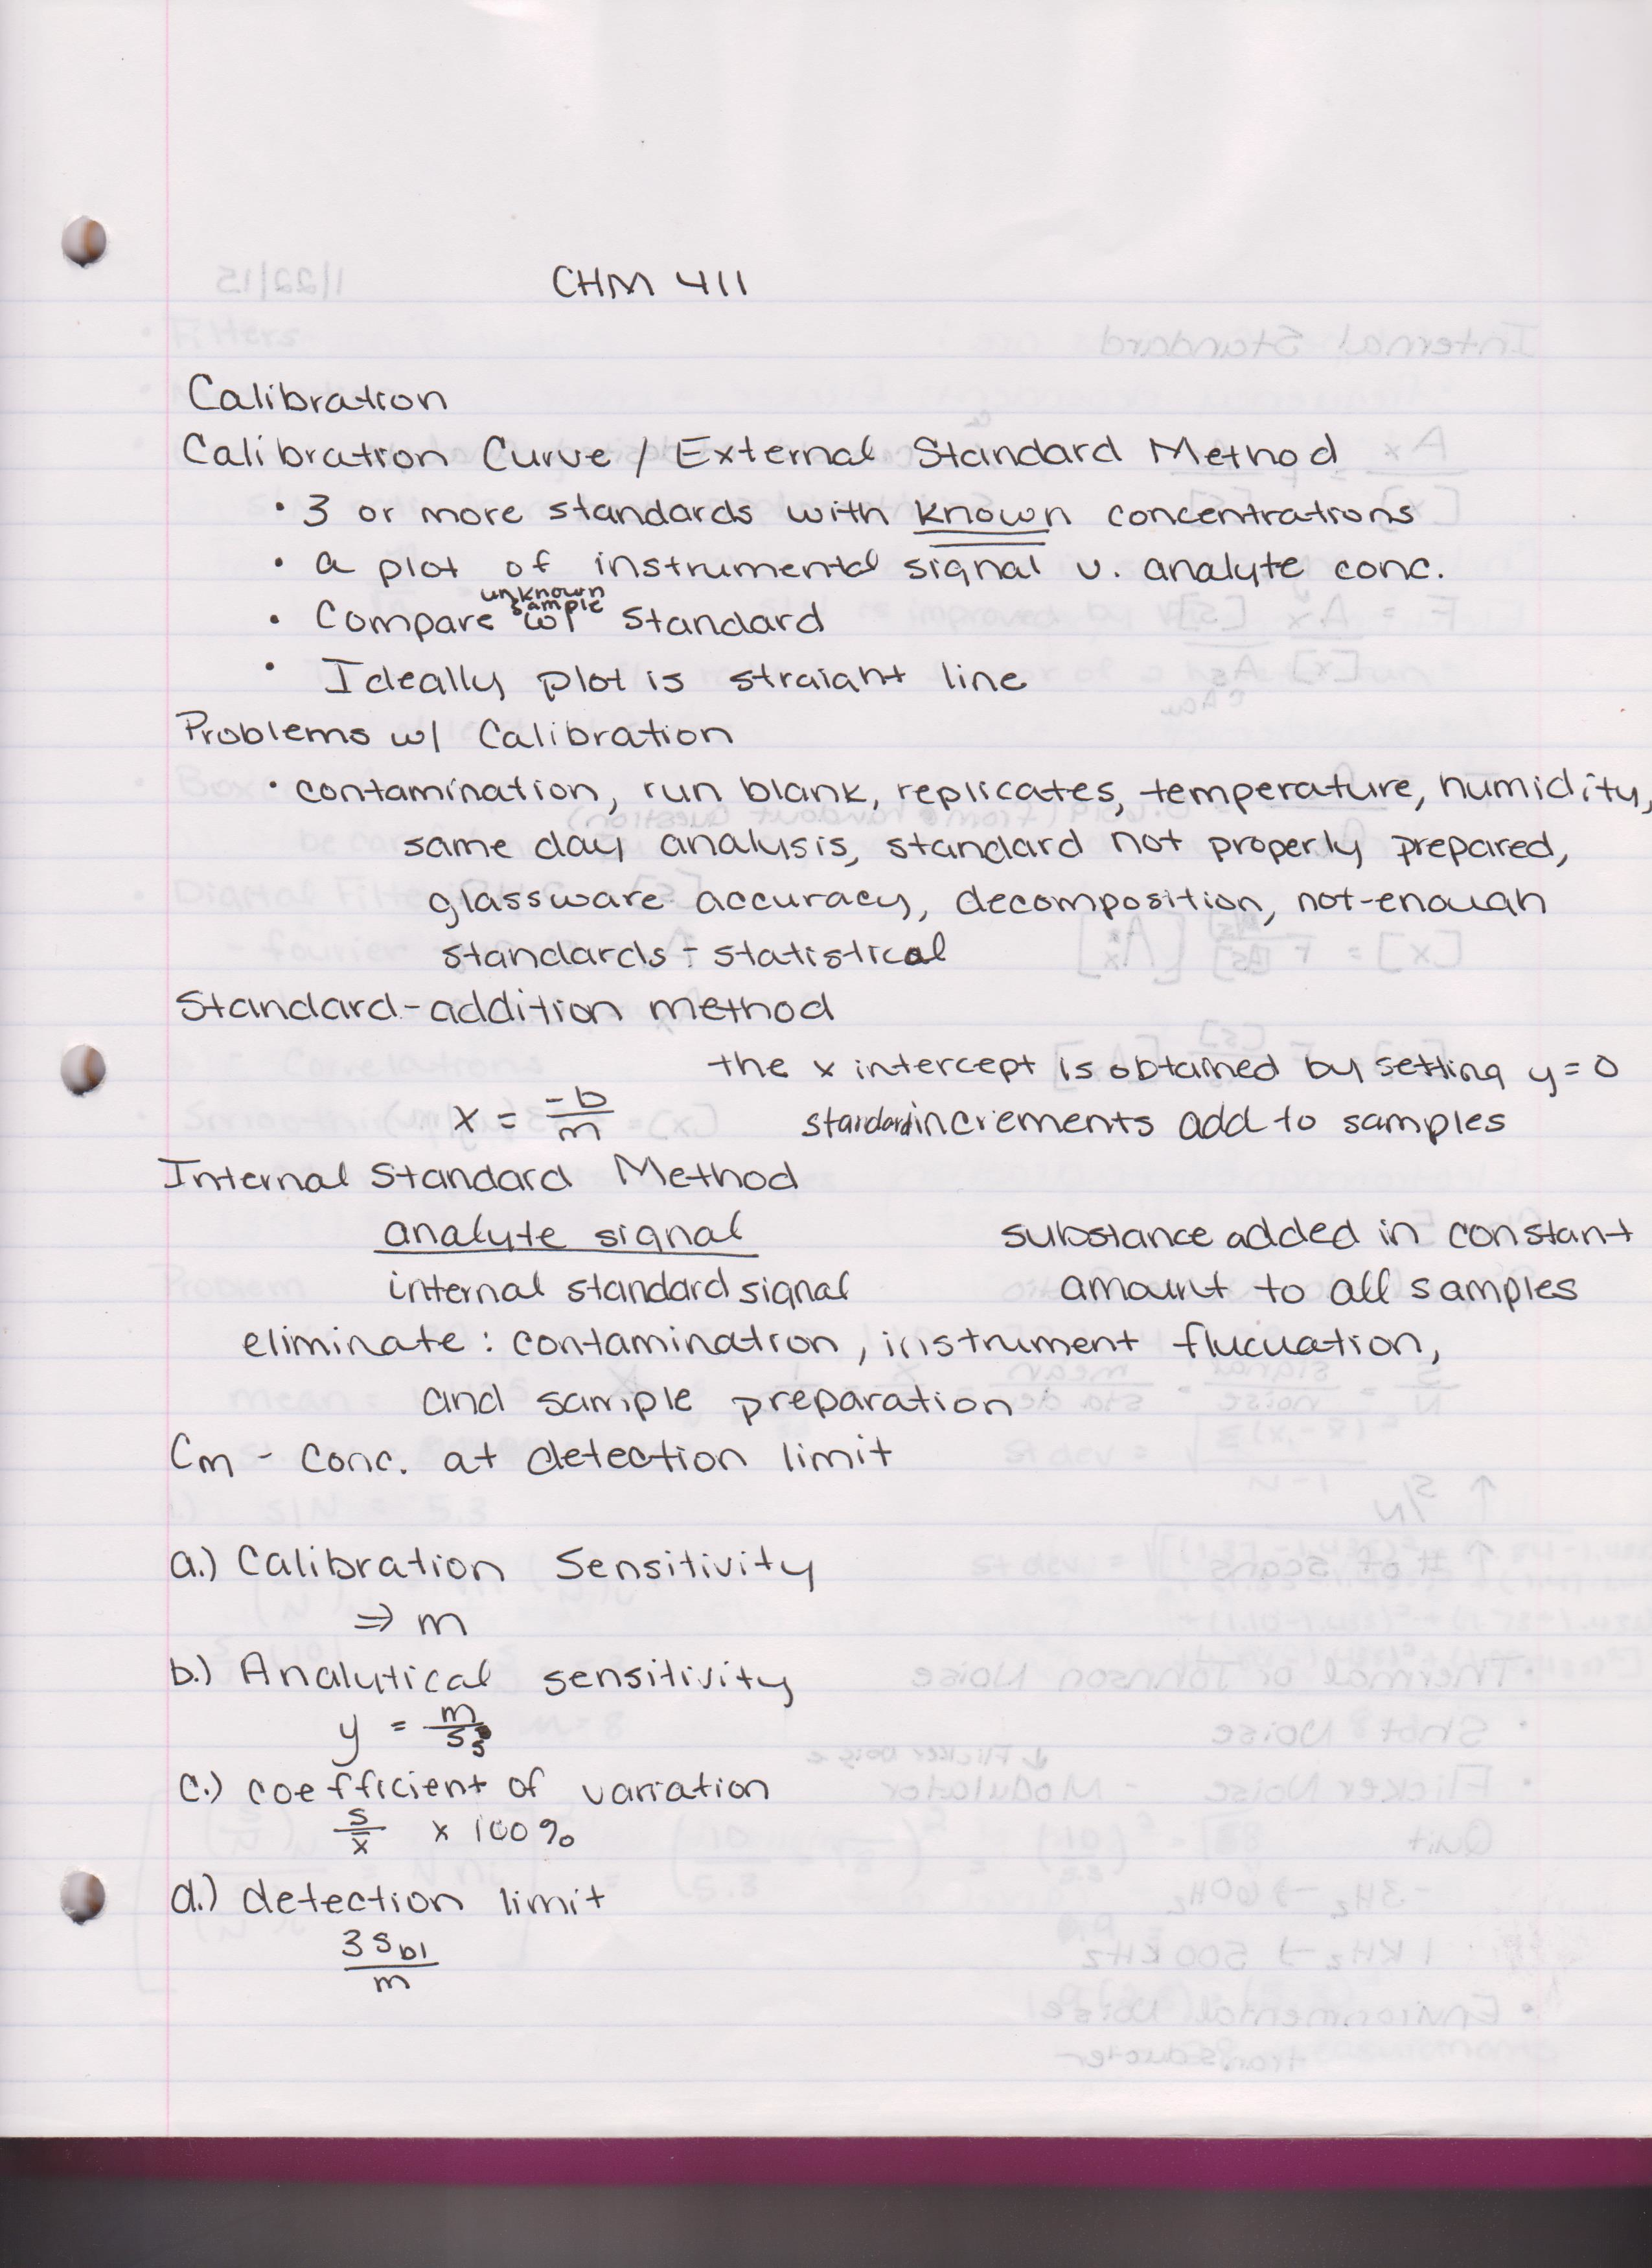 CHM 411
Calibration
Calibration Curve / External Standard Method
• 3 or more standards with known concentrations
• a plot of instrumental signal v. analyte conc.
• Compare unknown sample w/ standard
• Ideally plot is straight line
Problems w/ Calibration
• contamination, run blank, replicates, temperature, humidity,
same day analysis, standard not properly prepared,
glassware accuracy, decomposition, not-enough
standards - statistical
Standard-addition method
the x intercept is obtained by setting y = 0
x = -b/m
standard increments add to samples
Internal Standard Method
analyte signal
internal standard signal
substance added in constant
amount to all samples
eliminate : contamination, instrument flucuation,
and sample preparation
Cm - conc. at detection limit
a.) Calibration Sensitivity
⇒ m
b.) Analytical sensitivity
y = m/ss
c.) coefficient of variation
s/x̄ x 100%
d.) detection limit
3 sbl
m